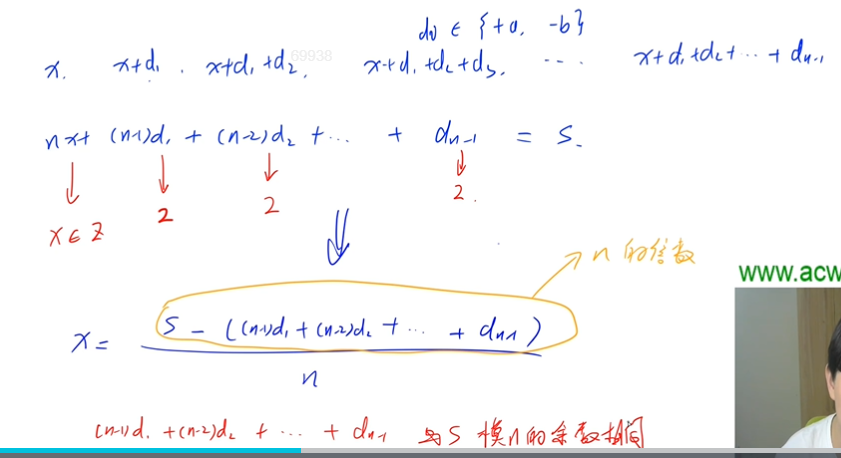 d_i ∈ {+a, -b}
x, x+d_1, x+d_1+d_2, x+d_1+d_2+d_3, ... x+d_1+d_2+...+d_{n-1}
69938
nx+(n-1)d_1+(n-2)d_2+...+d_{n-1} = S.
↓ ↓ ↓ ↓
x∈Z 2 2 2
⇓
n的倍数
www.acw
x = \frac{S-((n-1)d_1+(n-2)d_2+...+d_{n-1})}{n}
(n-1)d_1+(n-2)d_2+...+d_{n-1} 与S模n的余数相同